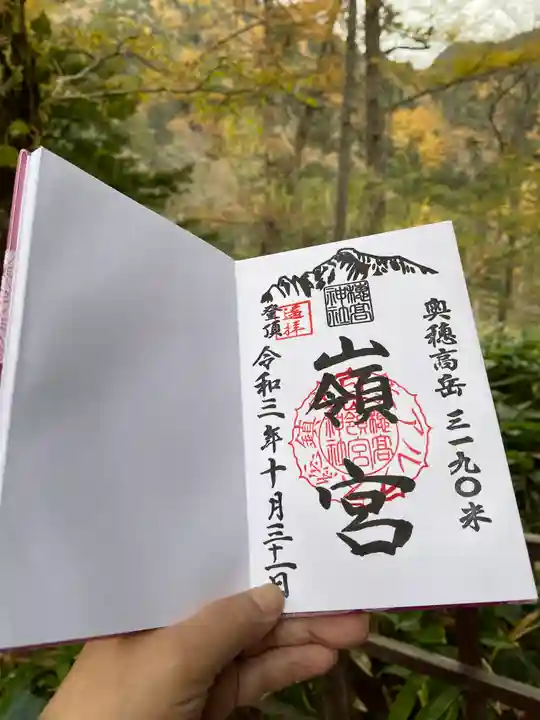 奥穂高岳 三一九〇米
穂高
神社
嶺宮
遥拝
登頂
令和三年十月三十一日